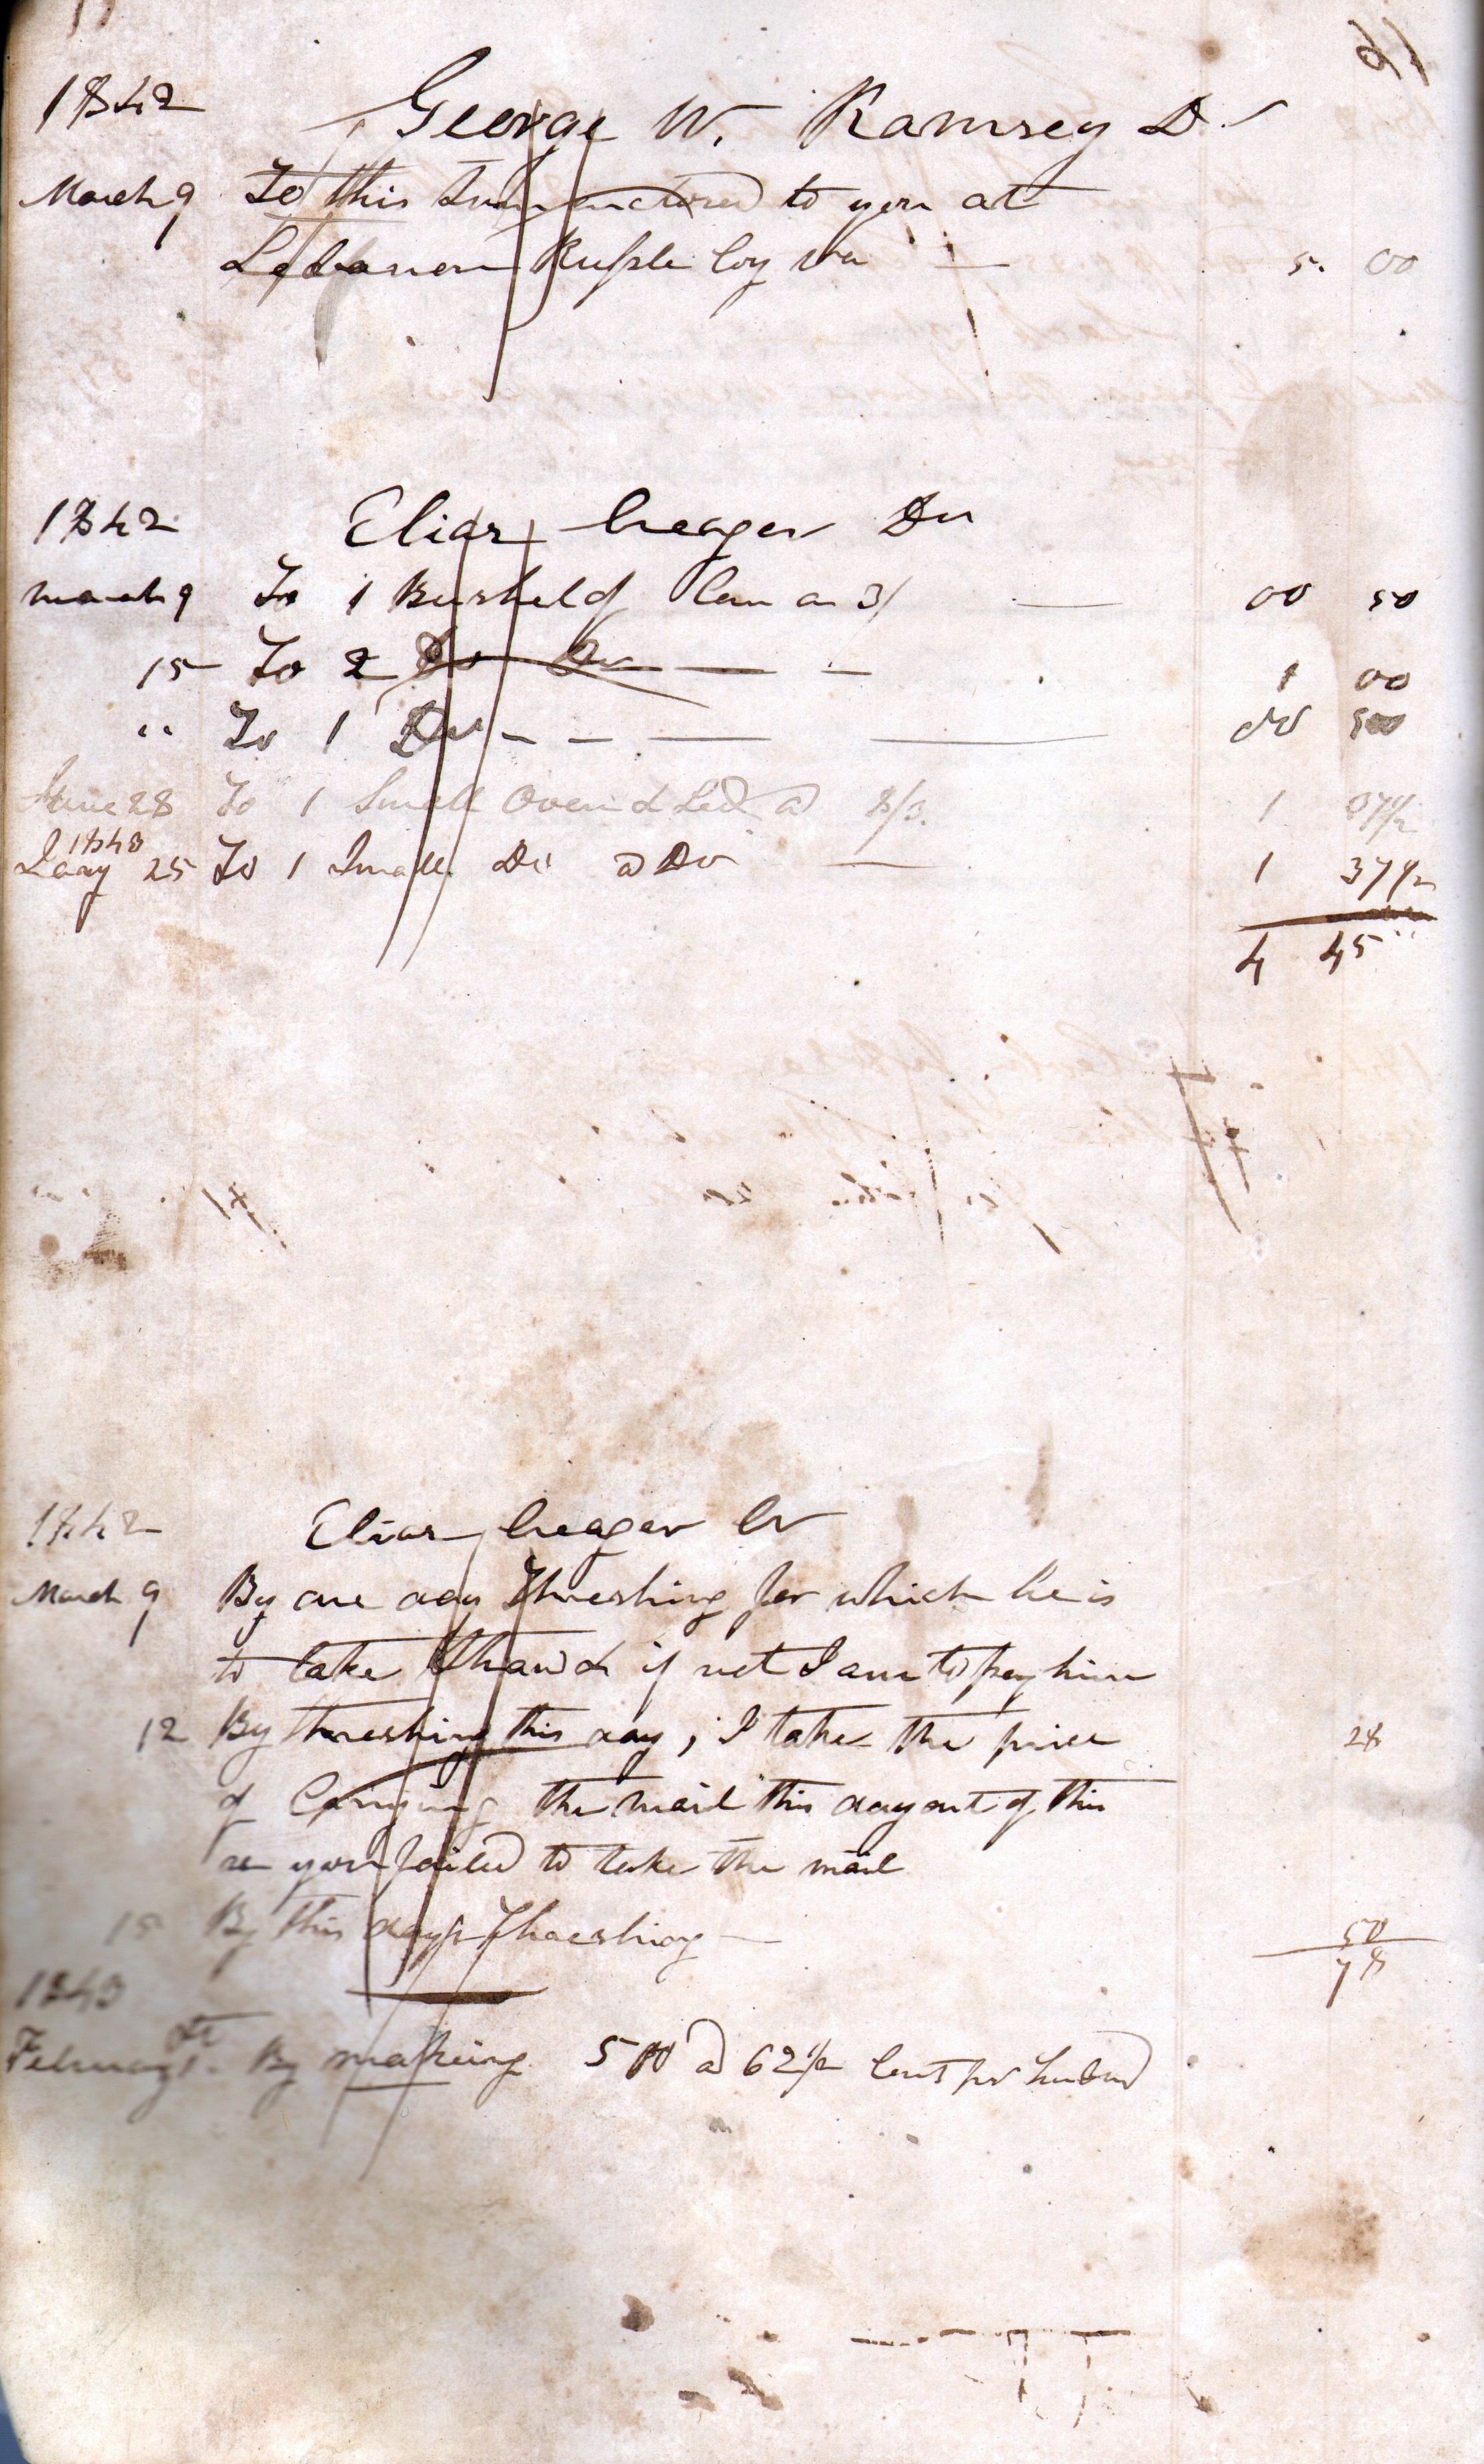 16
1842
George W. Ramsey Dr
March 9 To this Sum to you at
Lebanon Russle Coy Va 5. 00
1842
Elias Creager Dr
March 9 To 1 Bushel of Corn a 3/ 00 50
15 To 2 Do Do 1 00
" To 1 Do 00 50
June 28 To 1 Small Oven & Led @ 8/3. 1 37 1/2
1843
Jany 25 To 1 Small Do @ Do 1 37 1/2
4 45
1842
Elias Creager Cr
March 9 By one day Threshing for which he is
to take if not I am to pay him
12 By threshing this day; I take the price 28
of Carrying the mail this day out of this
as you failed to take the mail
15 By this days Thrashing 50
78
1843
February 1st By making 500 @ 62 1/2 Cents pr hundred